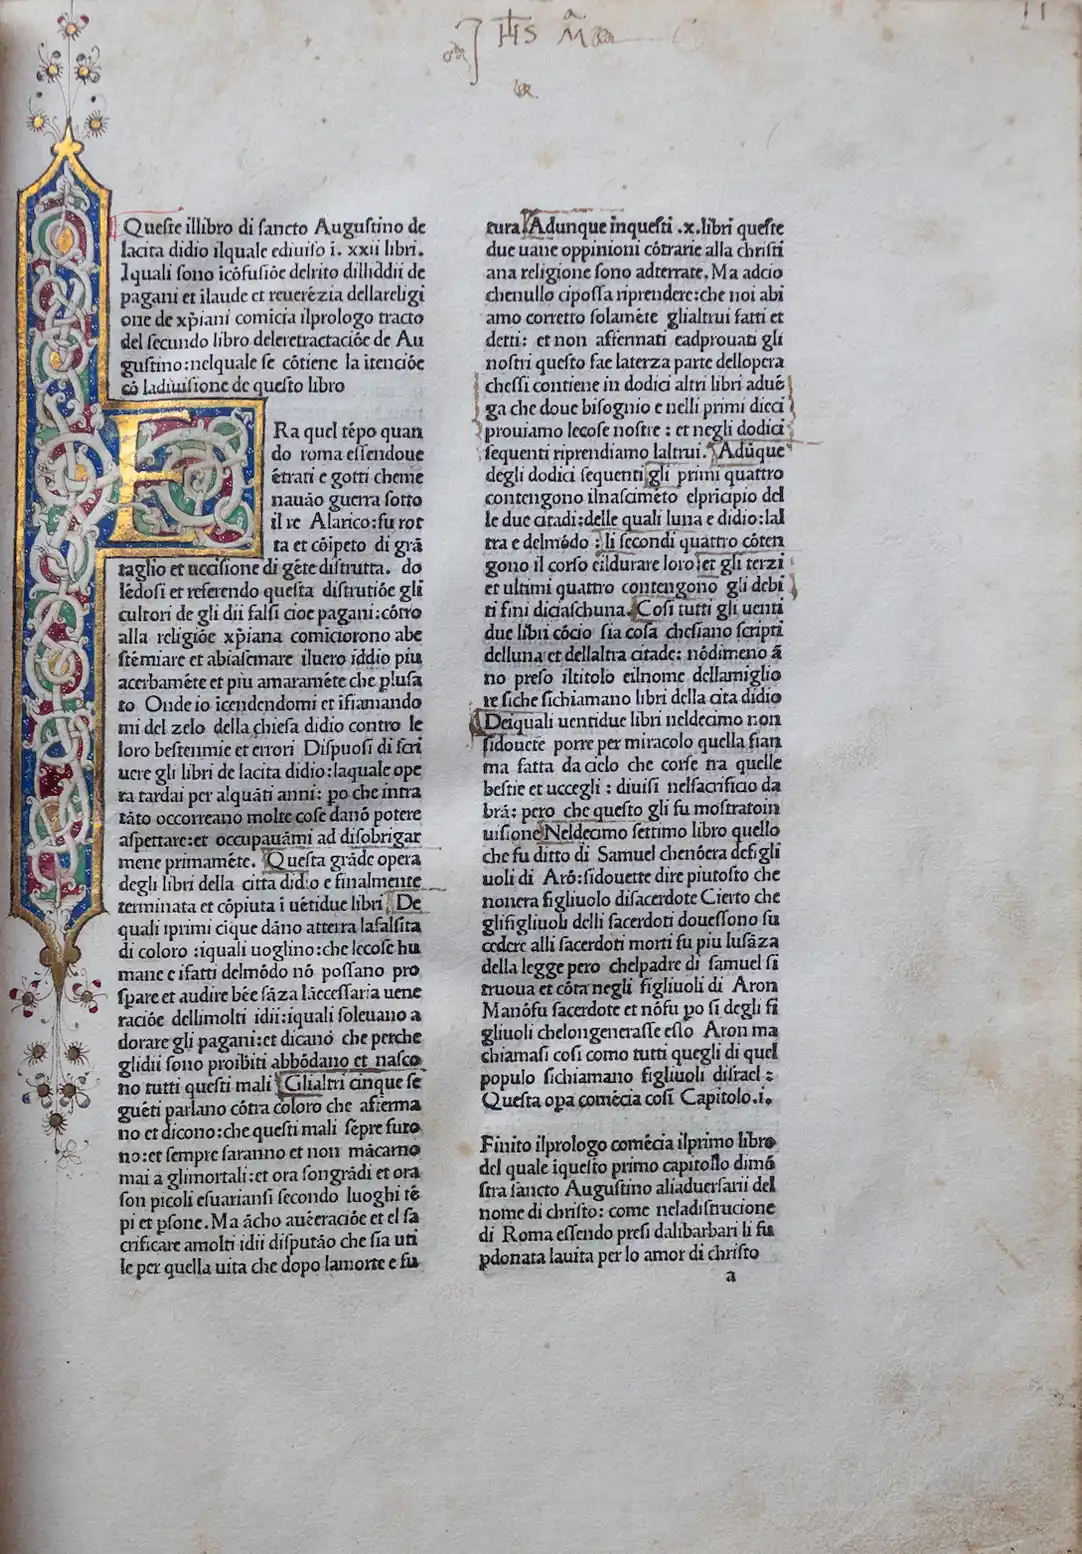 IHS Ma
11
Queſte illibro di ſancto Auguſtino de
lacita didio ilquale ediuiſo i. xxii libri.
Iquali ſono icōfuſiōe delrito dilliddii de
pagani et ilaude et reuerēzia dellareligi
one de xp̄iani comicia ilprologo tracto
del ſecundo libro deleretractaciōe de Au
guſtino:nelquale ſe cōtiene la itenciōe
cō ladiuiſione de queſto libro
ERa quel tēpo quan
do roma eſſendoue
ētrati e gotti cheme
nauāo guerra ſotto
il re Alarico:fu rot
ta et cōipeto di grā
taglio et ucciſione di gēte diſtrutta. do
lēdoſi et referendo queſta diſtrutiōe gli
cultori de gli dii falſi cioe pagani:cōtro
alla religiōe xp̄iana comiciorono abe
ſtēmiare et abiaſemare iluero iddio piu
acerbamēte et piu amaramēte che pluſa
to Onde io icendendomi et ifiamando
mi del zelo della chieſa didio contro le
loro beſtenmie et errori Diſpuoſi di ſcri
uere gli libri de lacita didio:laquale ope
ra tardai per alquāti anni: po che intra
tāto occorreano molte coſe danō potere
aſpettare:et occupauāmi ad diſobrigar
mene primamēte. Queſta grāde opera
degli libri della citta didio e finalmente
terminata et cōpiuta i uētidue libri De
quali iprimi cique dāno atterra lafalſita
di coloro :iquali uoglino:che lecoſe hu
mane e ifatti delmōdo nō poſſano pro
ſpare et audire bēe ſāza lāceſſaria uene
raciōe dellimolti idii:iquali ſoleuano a
dorare gli pagani:et dicano che perche
glidii ſono proibiti abbōdano et naſco
no tutti queſti mali Glialtri cinque ſe
guēti parlano cōtra coloro che afierma
no et dicono:che queſti mali ſēpre furo
no:et ſempre ſaranno et non mācarno
mai a glimortali:et ora ſongrādi et ora
ſon picoli eſuarianſi ſecondo luoghi tē
pi et pſone. Ma ācho auēeraciōe et el ſa
crificare amolti idii diſputāo che ſia uti
le per quella uita che dopo lamorte e fu
tura Adunque inqueſti .x. libri queſte
due uane oppinioni cōtrarie alla chriſti
ana religione ſono adterrate. Ma adcio
chenullo cipoſſa riprendere:che noi abi
amo corretto ſolamēte glialtrui fatti et
detti: et non affermati eadprouati gli
noſtri queſto fae laterza parte dellopera
cheſſi contiene in dodici altri libri aduē
ga che doue biſognio e nelli primi dieci
prouiamo lecoſe noſtre : et negli dodici
ſequenti riprendiamo laltrui. Adūque
degli dodici ſequenti gli primi quattro
contengono ilnaſcimēto elpricipio del
le due citadi:delle quali luna e didio:lal
tra e delmōdo : li ſecondi quattro cōten
gono il corſo eildurare loro:et gli terzi
et ultimi quattro contengono gli debi
ti fini diciaſchuna. Coſi tutti gli uenti
due libri cōcio ſia coſa cheſiano ſcripti
delluna et dellaltra citade: nōdimeno ā
no preſo iltitolo eilnome dellamiglio
re ſiche ſichiamano libri della cita didio
Deiquali uentidue libri neldecimo non
ſidouete porre per miracolo quella fiam
ma fatta da cielo che corſe tra quelle
beſtie et uccegli : diuiſi nelſacrificio da
brā: pero che queſto gli fu moſtratoin
uiſione Neldecimo ſettimo libro quello
che fu ditto di Samuel chenōera defigli
uoli di Arō:ſidouette dire piutoſto che
nonera figliuolo diſacerdote Cierto che
glifigliuoli delli ſacerdoti doueſſono ſu
cedere alli ſacerdoti morti fu piu luſāza
della legge pero chelpadre di ſamuel ſi
truoua et cōta negli figliuoli di Aron
Manōfu ſacerdote et nōfu po ſi degli fi
gliuoli chelongeneraſſe eſſo Aron ma
chiamaſi coſi come tutti quegli di quel
populo ſichiamano figliuoli diſrael :
Queſta opa comēcia coſi Capitolo .i.
Finito ilprologo comēcia ilprimo libro
del quale iqueſto primo capitollo dimō
ſtra ſancto Auguſtino aliaduerſarii del
nome di chriſto: come neladiſtrucione
di Roma eſſendo preſi dalibarbari li fu
pdonata lauita per lo amor di chriſto
a